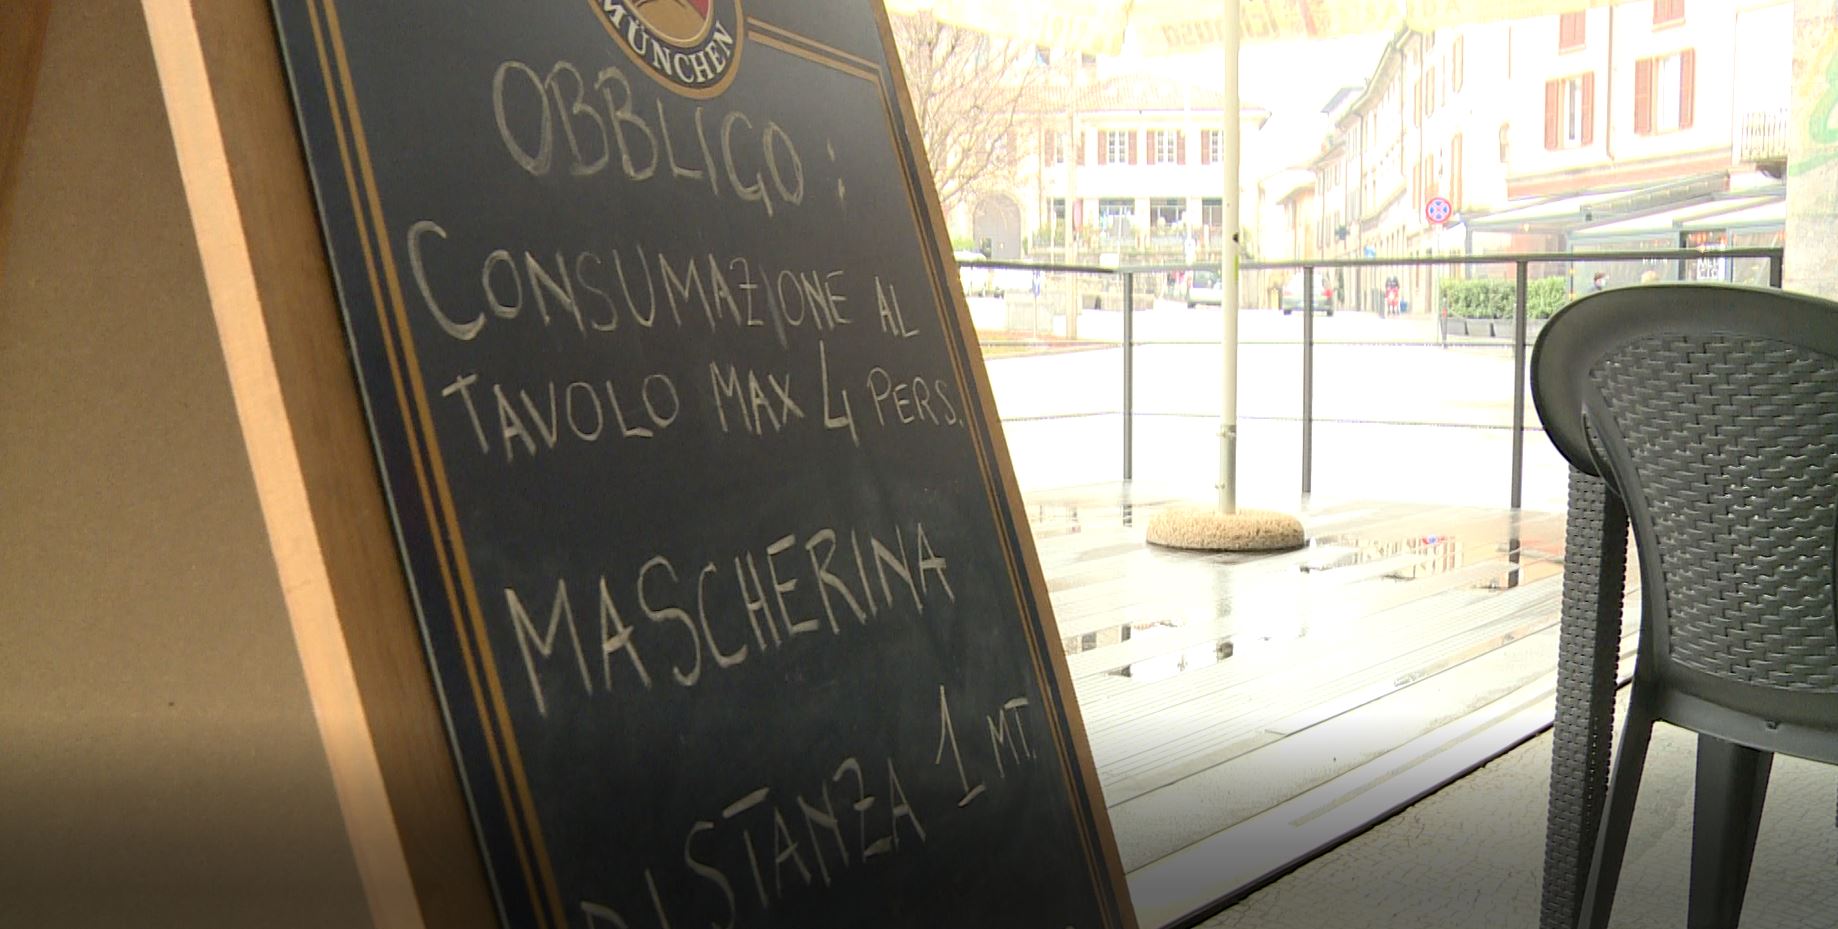 MÜNCHEN
OBBLIGO :
CONSUMAZIONE AL
TAVOLO MAX 4 PERS.
MASCHERINA
DISTANZA 1 MT.